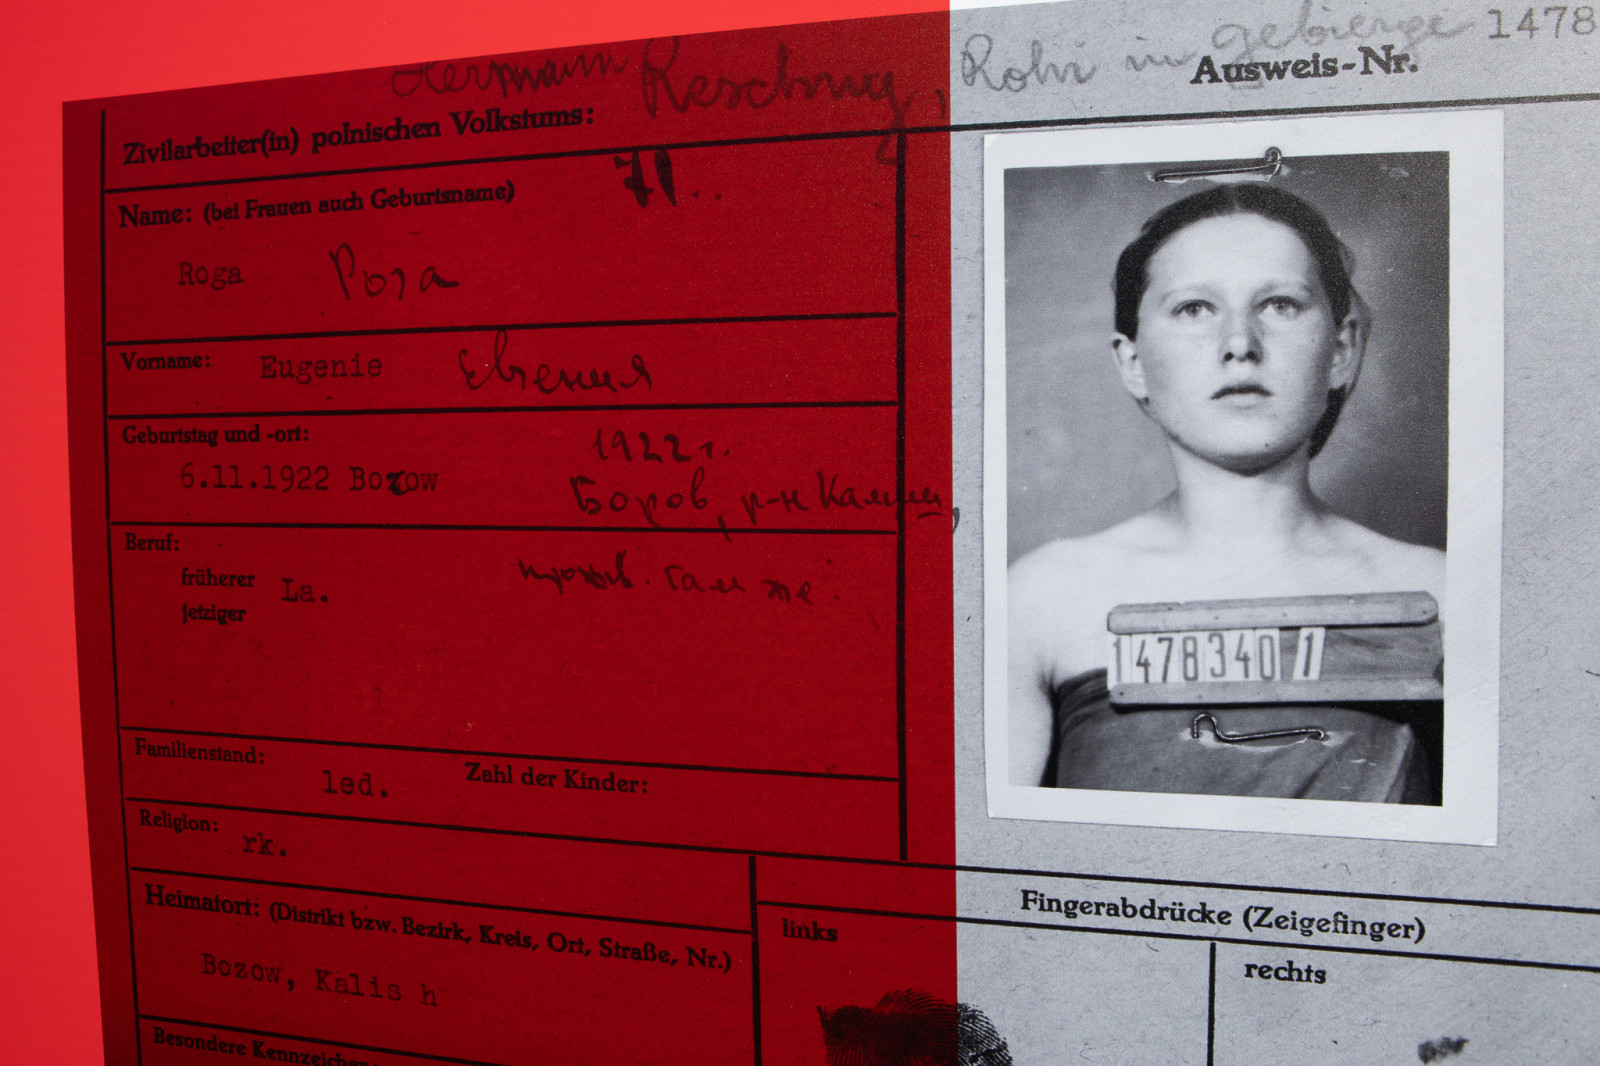 Hermann Reschny, Rohr im gebierge 1478
Ausweis-Nr.
Zivilarbeiter(in) polnischen Volkstums:
71..
Name: (bei Frauen auch Geburtsname)
Roga Рога
Vorname: Eugenie Евгения
Geburtstag und -ort:
1922 г.
6.11.1922 Bozow
Боров, р-н Калиш,
Beruf:
früherer La.
jetziger
прожив. там же.
Familienstand: led. Zahl der Kinder:
Religion: rk.
Heimatort: (Distrikt bzw. Bezirk, Kreis, Ort, Straße, Nr.)
Bozow, Kalis h
Besondere Kennzeichen
1478340 1
Fingerabdrücke (Zeigefinger)
links
rechts